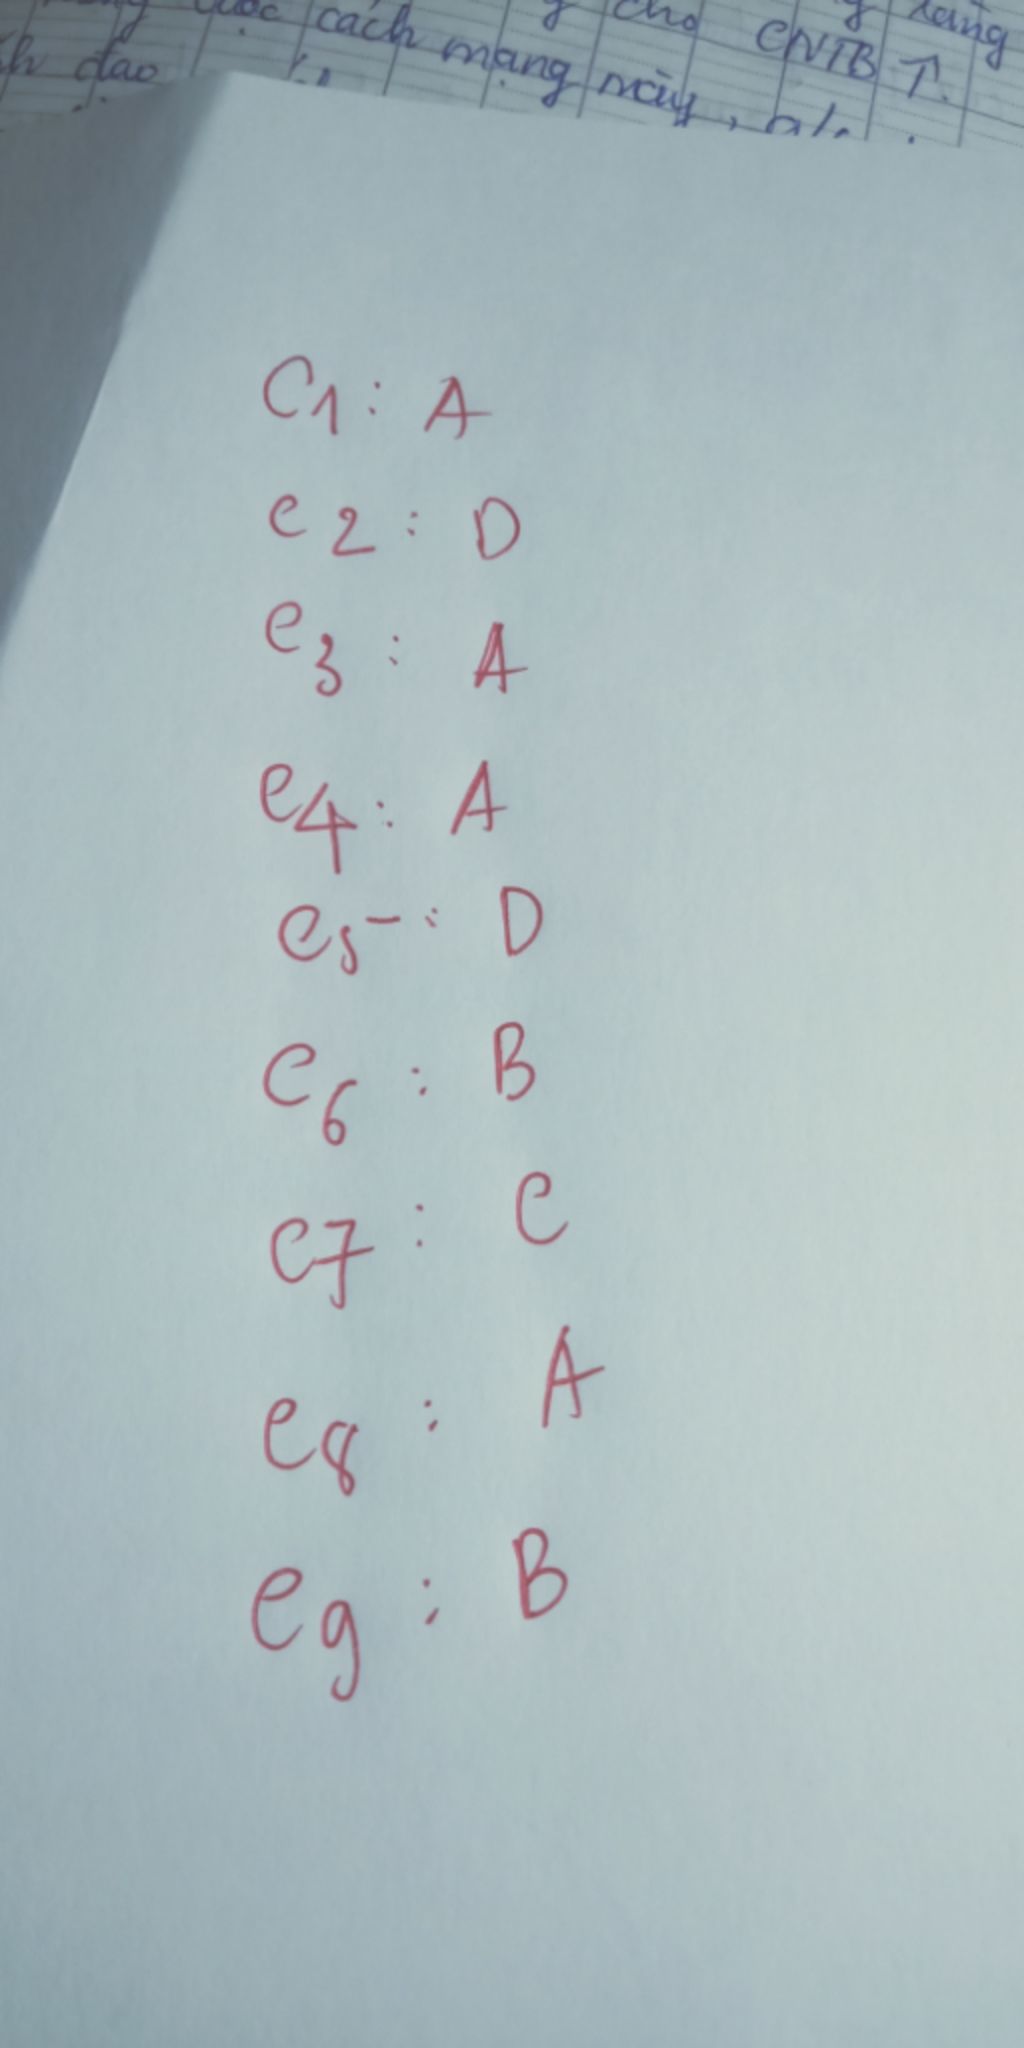 cách mạng này,
cho
CNTB ↑.
đạo
C1: A
C2: D
C3: A
C4: A
C5: D
C6: B
C7: C
C8: A
C9: B